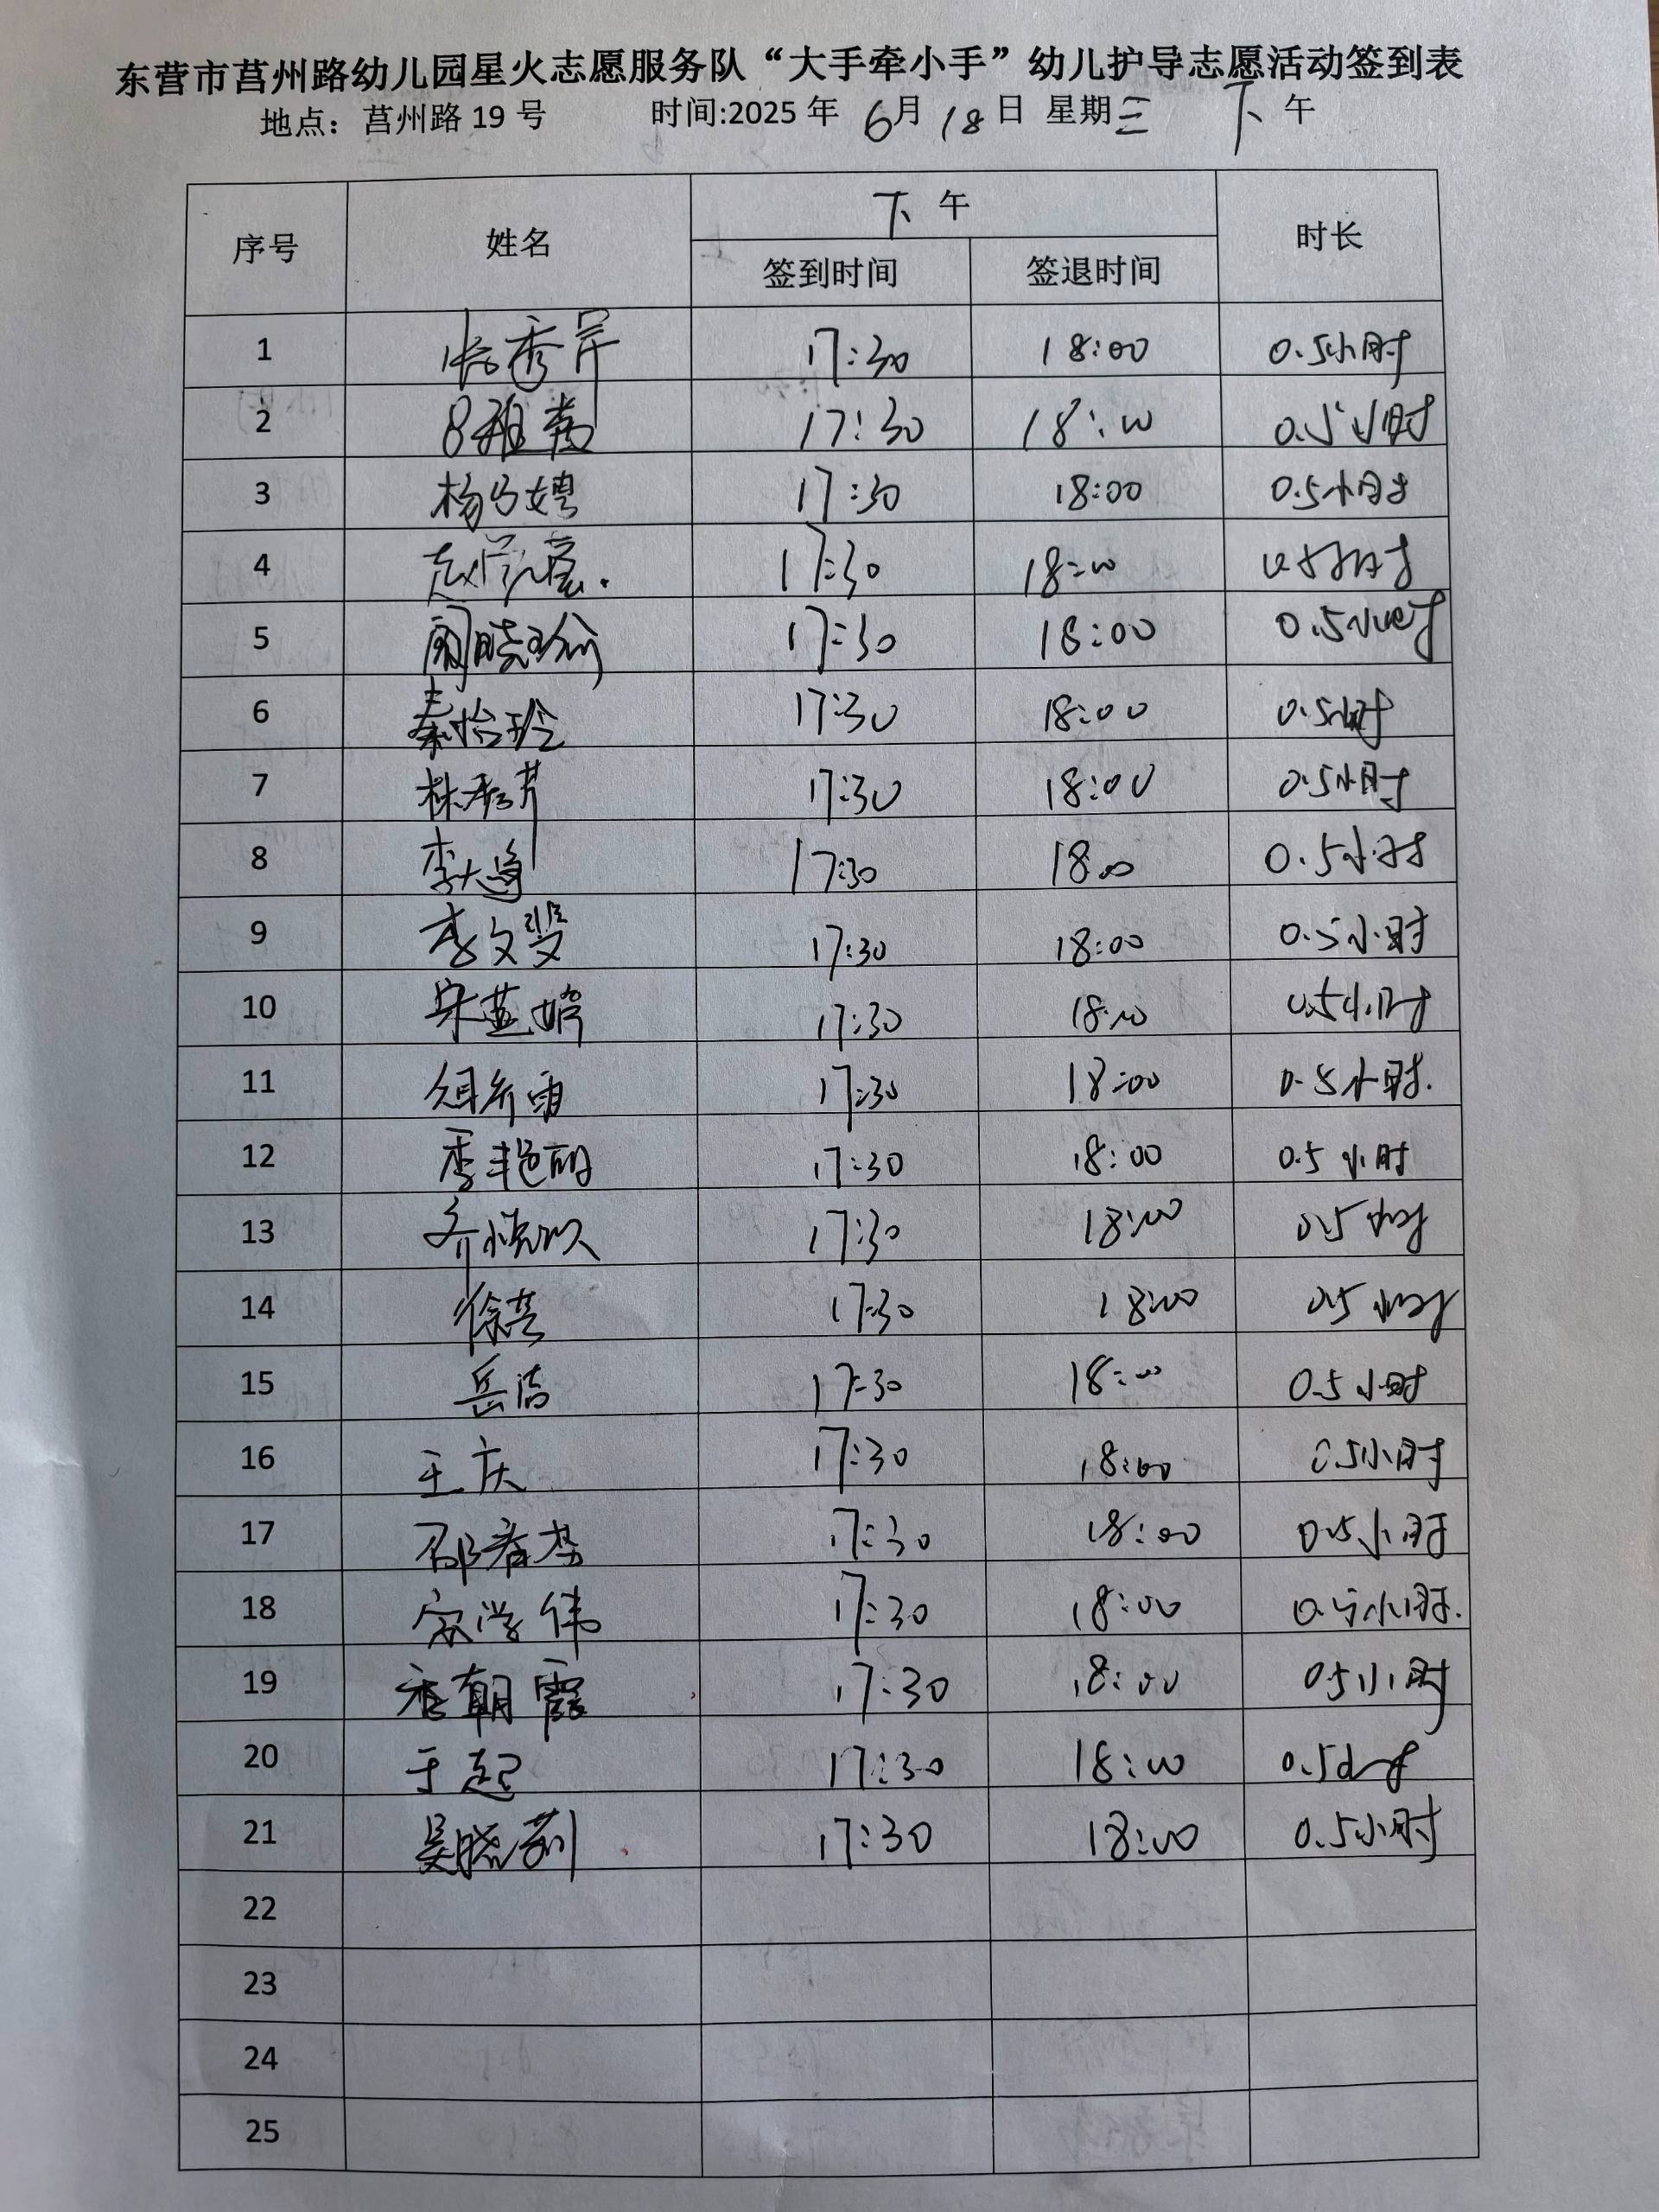 东营市莒州路幼儿园星火志愿服务队“大手牵小手”幼儿护导志愿活动签到表
地点：莒州路 19 号 时间:2025 年 6月 18日 星期三 下午
序号 姓名 下午 时长
签到时间 签退时间
1 张秀芹 17:30 18:00 0.5小时
2 17:30 18:00 0.5小时
3 杨子娉 17:30 18:00 0.5小时
4 17:30 18:00 0.5小时
5 17:30 18:00 0.5小时
6 秦怡玲 17:30 18:00 0.5小时
7 17:30 18:00 0.5小时
8 李大海 17:30 18:00 0.5小时
9 李文婴 17:30 18:00 0.5小时
10 宋蓝婷 17:30 18:00 0.5小时
11 17:30 18:00 0.5小时.
12 李艳丽 17:30 18:00 0.5小时
13 17:30 18:00 0.5小时
14 17:30 18:00 0.5小时
15 岳洁 17:30 18:00 0.5小时
16 王庆 17:30 18:00 0.5小时
17 17:30 18:00 0.5小时
18 宋学伟 17:30 18:00 0.5小时.
19 朝霞 17:30 18:00 0.5小时
20 于起 17:30 18:00 0.5小时
21 吴晓莉 17:30 18:00 0.5小时
22
23
24
25